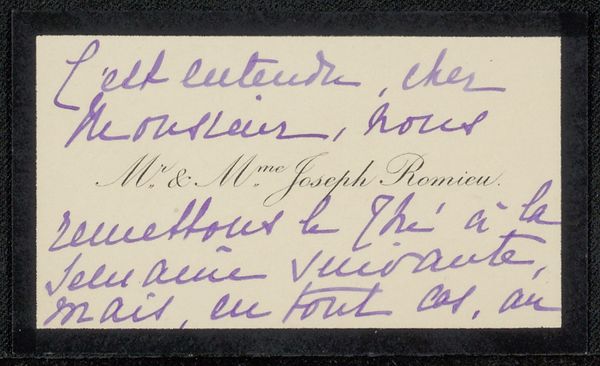 C'est entendu, cher
Monsieur, nous
Mr. & Mme. Joseph Romieu.
remettons le Thé à la
semaine suivante,
mais, en tout cas, au